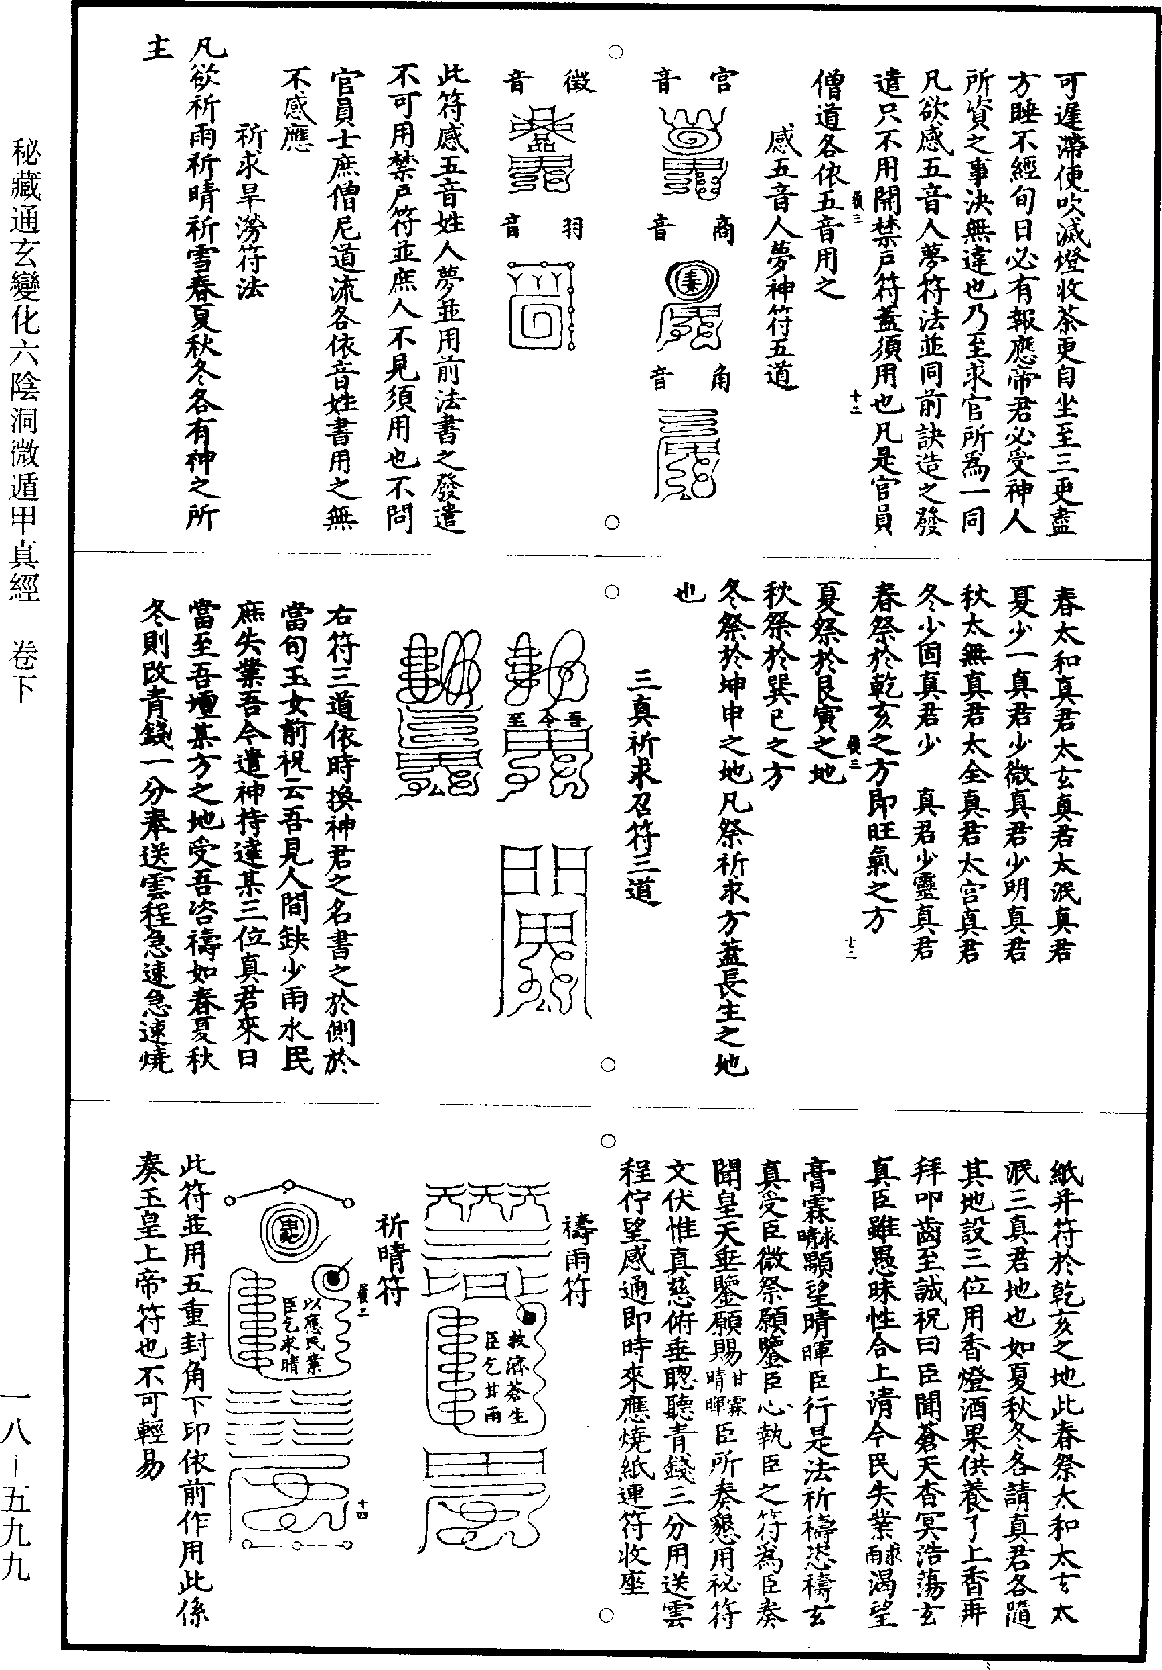 可遲滯使吹滅燈收茶更自坐至三更盡
方睡不經旬日必有報應帝君必受神人
所資之事決無違也乃至求官所為一同
凡欲感五音人夢符法並同前訣造之發
遣只不用開禁戶符蓋須用也凡是官員
僧道各依五音用之
感五音人夢神符五道
宮音
商音
角音
徵音
羽音
此符感五音姓人夢並用前法書之發遣
不可用禁戶符並庶人不見須用也不問
官員士庶僧尼道流各依音姓書用之無
不感應
祈求旱澇符法
凡欲祈雨祈晴祈雪春夏秋冬各有神之所
主
春太和真君太玄真君太泯真君
夏少一真君少微真君少明真君
秋太無真君太全真君太宫真君
冬少固真君少 真君少靈真君
春祭於乾亥之方即旺氣之方
夏祭於艮寅之地
秋祭於巽巳之方
冬祭於坤申之地凡祭祈求方蓋長生之地
也
三真祈求召符三道
吾令至
右符三道依時換神君之名書之於側於
當旬玉女前祝云吾見人間缺少雨水民
庶失業吾今遣神持達某三位真君來日
當至吾壇某方之地受吾咨禱如春夏秋
冬則改青錢一分奉送雲程急速急速燒
紙并符於乾亥之地此春祭太和太玄太
泯三真君地也如夏秋冬各請真君各隨
其地設三位用香燈酒果供養了上香再
拜叩齒至誠祝曰臣聞蒼天杳冥浩蕩玄
真臣雖愚昧性合上清今民失業求雨渴望
膏霖求晴顯望晴暉臣行是法祈禱恣禱玄
真受臣微祭願鑒臣心執臣之符為臣奏
聞皇天垂鑒願賜甘霖晴暉臣所奏懇用祕符
文伏惟真慈俯垂聰聽青錢三分用送雲
程佇望感通即時來應燒紙連符收座
禱雨符
救濟蒼生
臣乞甘雨
祈晴符
以應民業
臣乞求晴
此符並用五重封角下印依前作用此係
奏玉皇上帝符也不可輕易
秘藏通玄變化六陰洞微遁甲真經 卷下
一八-五九九